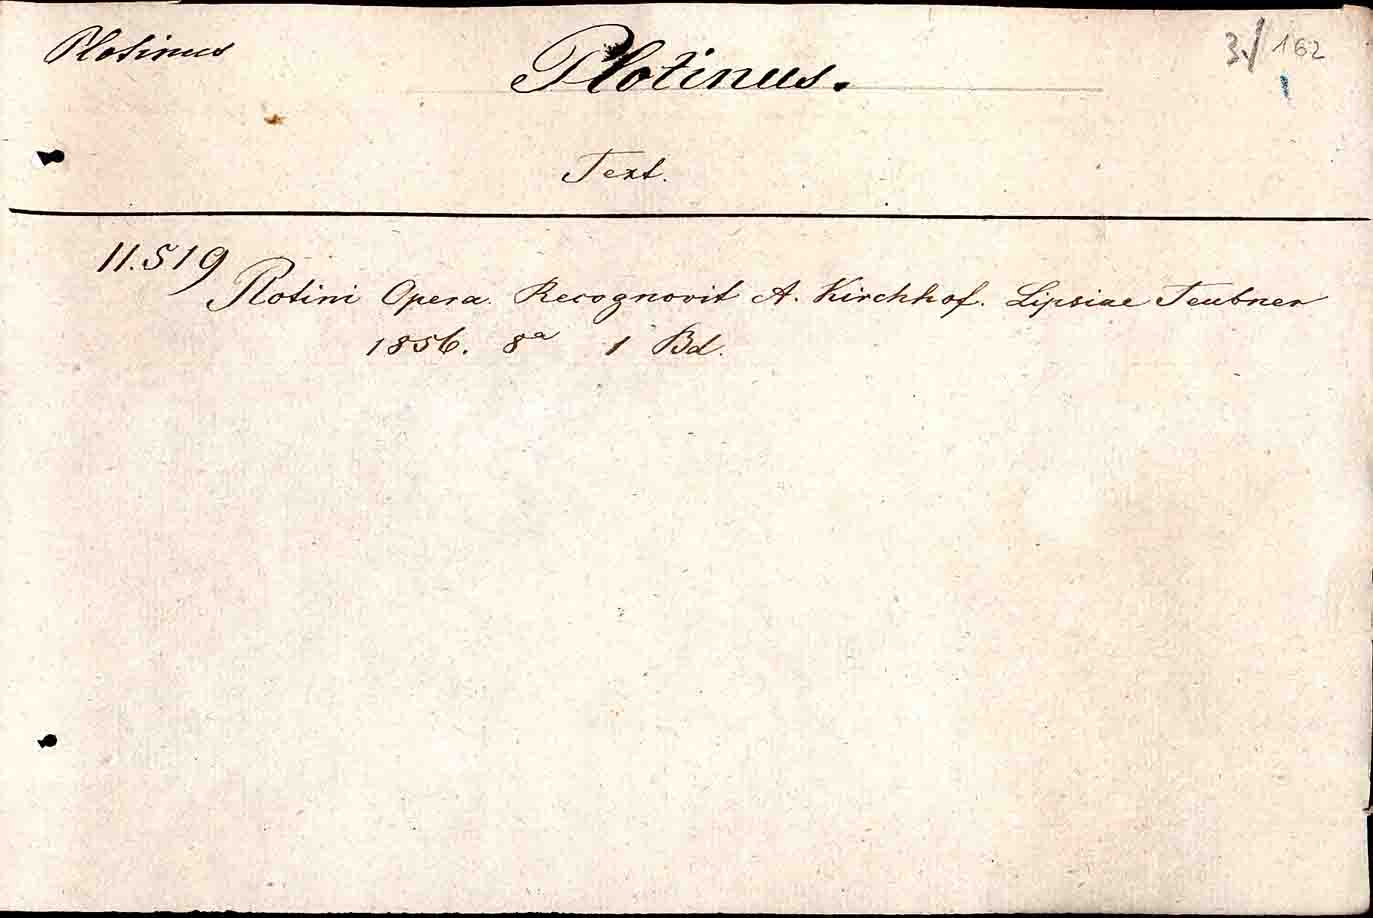 Plotinus
Plotinus.
3/162
Text.
11.519
Plotini Opera. Recognovit A. Kirchhof. Lipsiae Teubner
1856. 8a 1 Bd.